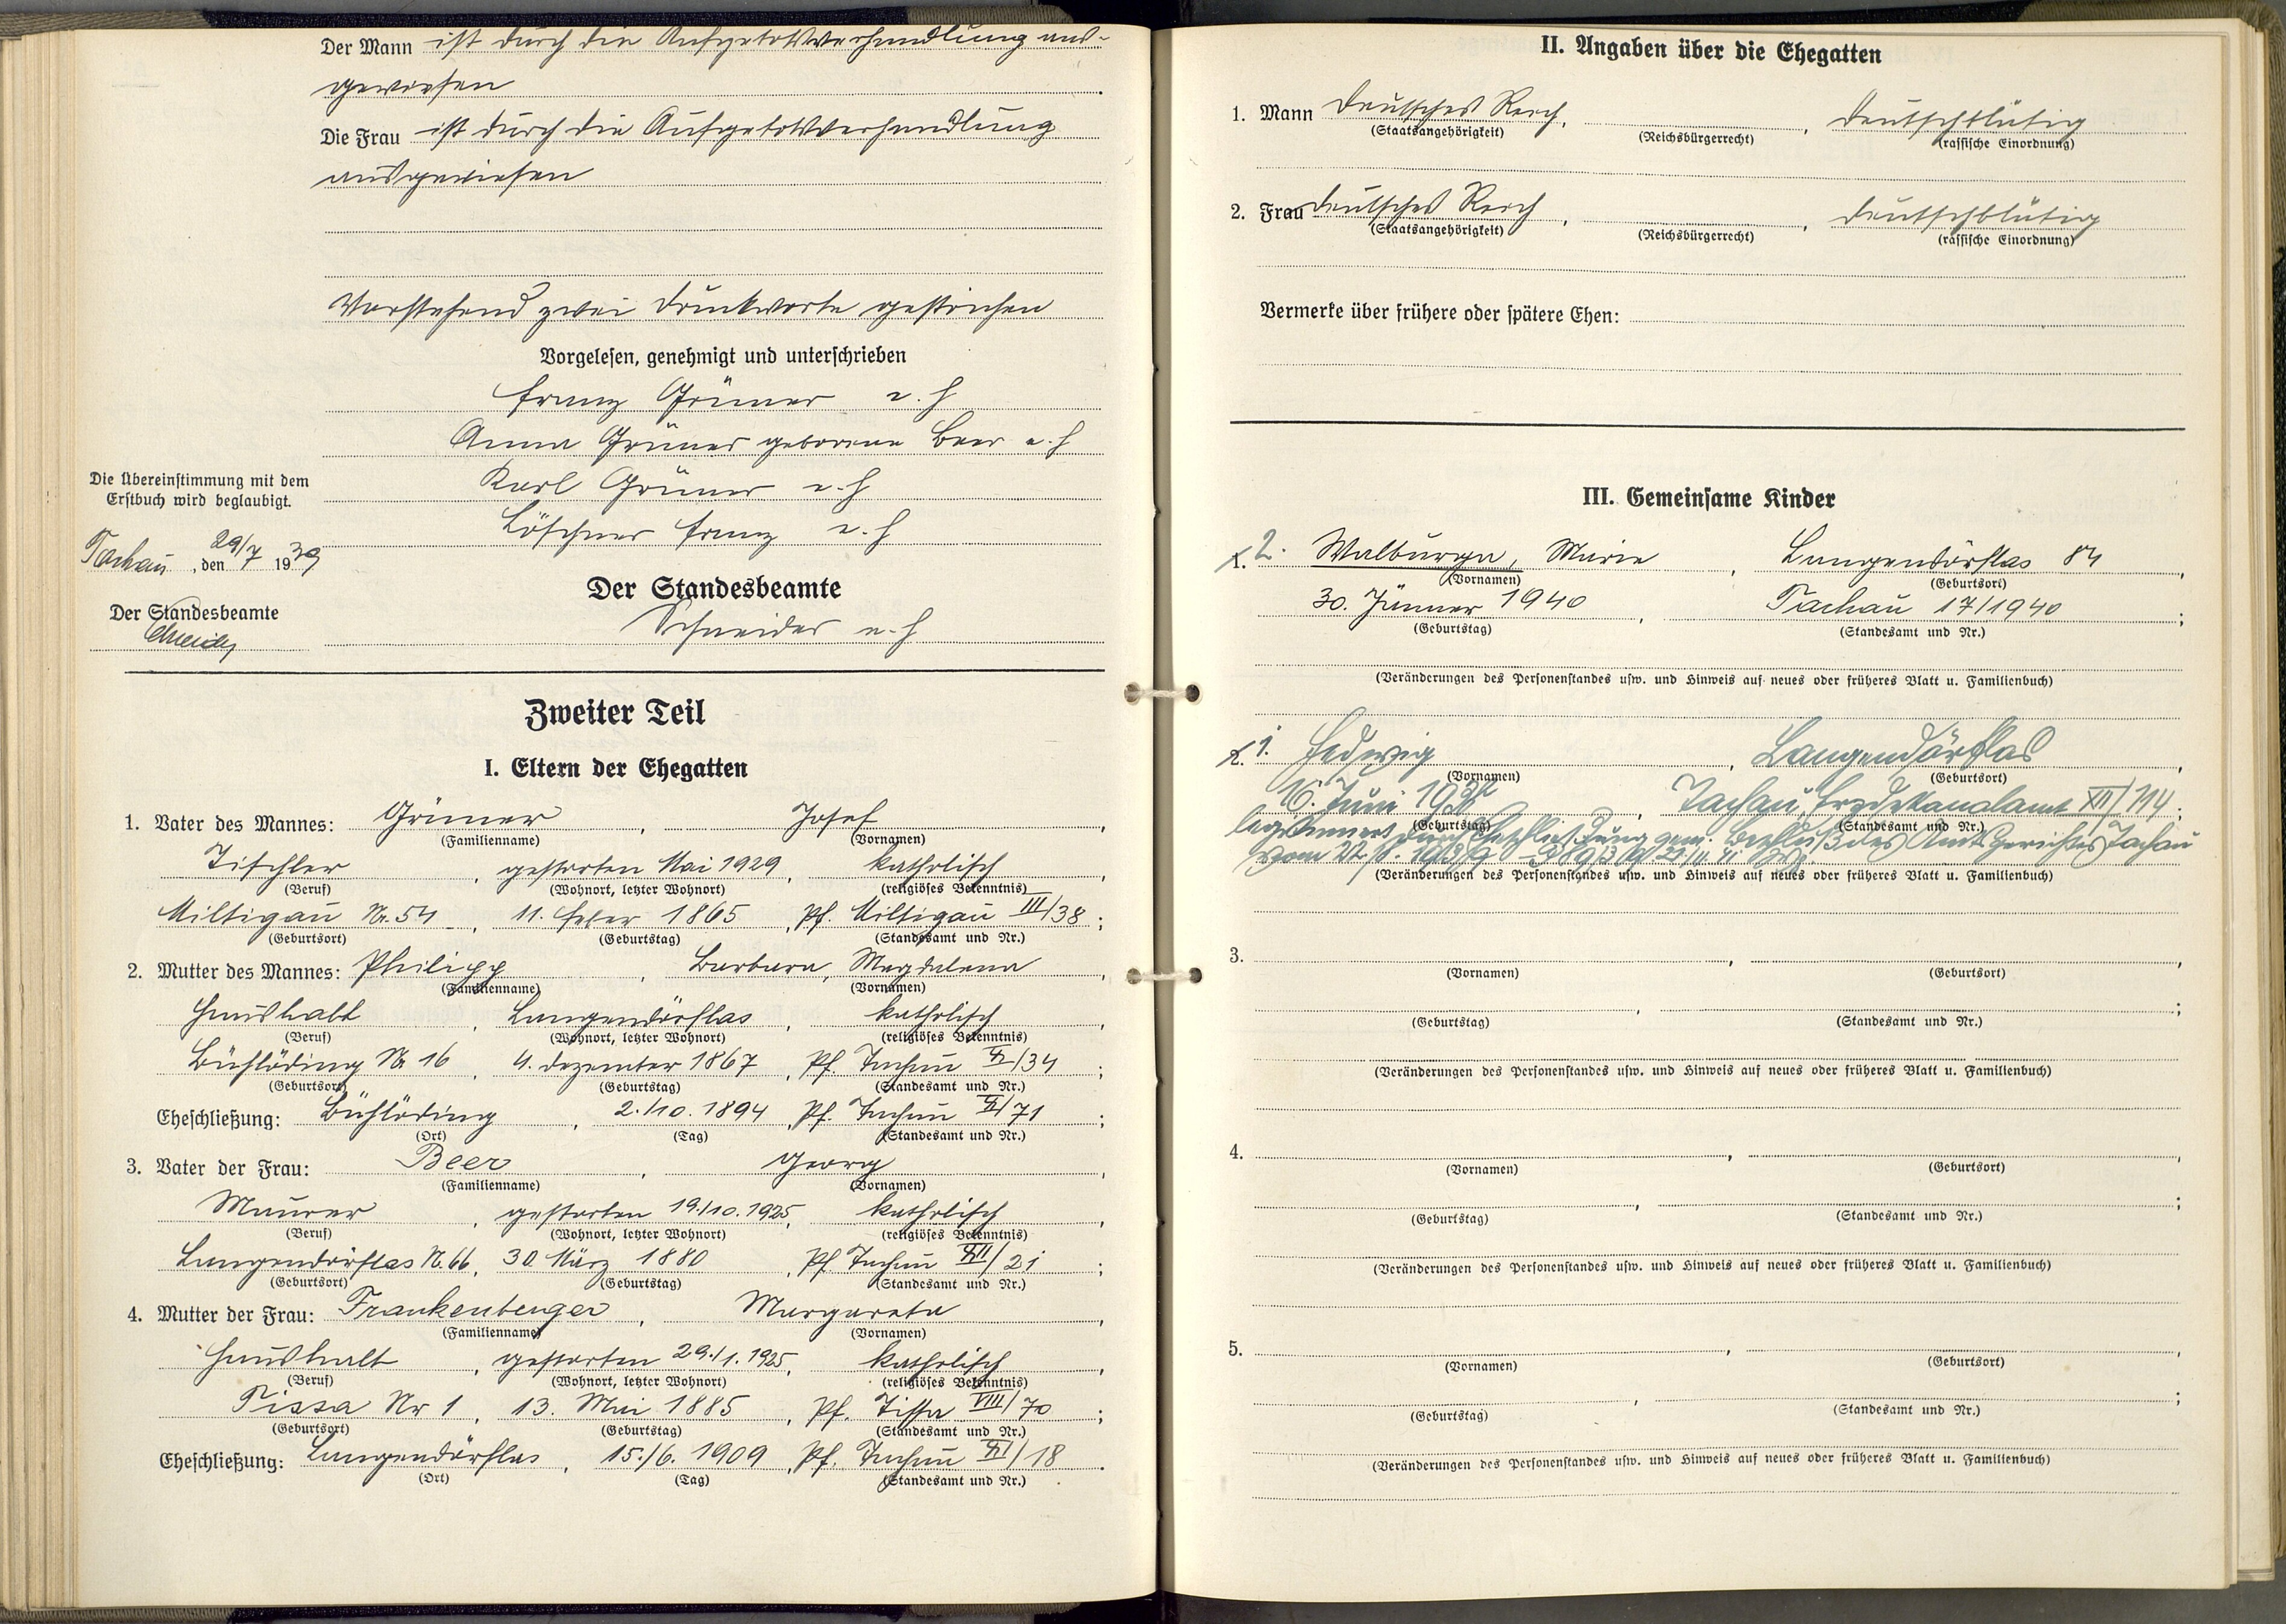 Der Mann ist durch die Aufgebotsverhandlung aus-
gewiesen
Die Frau ist durch die Aufgebotsverhandlung
ausgewiesen
Vorstehend zwei Druckworte gestrichen
Vorgelesen, genehmigt und unterschrieben
Franz Grüner e. h
Anna Grüner geborene Beer e. h
Karl Grüner e. h
Löschner Franz e. h
Die Übereinstimmung mit dem
Erstbuch wird beglaubigt.
Tachau, den 29/7 1939
Der Standesbeamte
Schneider
Der Standesbeamte
Schneider e. h
Zweiter Teil
I. Eltern der Ehegatten
1. Vater des Mannes: Grüner, Josef,
(Familienname) (Vornamen)
Tischler, gestorben Mai 1929, katholisch,
(Beruf) (Wohnort, letzter Wohnort) (religiöses Bekenntnis)
Miltigau Nr. 54, 11. Feber 1865, Pf. Miltigau III/38;
(Geburtsort) (Geburtstag) (Standesamt und Nr.)
2. Mutter des Mannes: Philipp, Barbara, Magdalena,
(Familienname) (Vornamen)
Haushalt, Langendörflas, katholisch,
(Beruf) (Wohnort, letzter Wohnort) (religiöses Bekenntnis)
Bühlöding Nr 16, 4. Dezember 1867, Pf. Tachau /34;
(Geburtsort) (Geburtstag) (Standesamt und Nr.)
Eheschließung: Bühlöding, 2./10. 1894, Pf. Tachau /71;
(Ort) (Tag) (Standesamt und Nr.)
3. Vater der Frau: Beer, Georg,
(Familienname) (Vornamen)
Maurer, gestorben 19./10. 1925, katholisch,
(Beruf) (Wohnort, letzter Wohnort) (religiöses Bekenntnis)
Langendörflas N. 66, 30 März 1880, Pf. Tachau /21;
(Geburtsort) (Geburtstag) (Standesamt und Nr.)
4. Mutter der Frau: Frankenberger, Margareta,
(Familienname) (Vornamen)
Haushalt, gestorben 29./1. 1925, katholisch,
(Beruf) (Wohnort, letzter Wohnort) (religiöses Bekenntnis)
Tissa Nr 1, 13. Mai 1885, Pf. Tissa VIII/70;
(Geburtsort) (Geburtstag) (Standesamt und Nr.)
Eheschließung: Langendörflas, 15./6. 1909, Pf. Tachau /18.
(Ort) (Tag) (Standesamt und Nr.)
II. Angaben über die Ehegatten
1. Mann Deutsches Reich, , deutschblütig
(Staatsangehörigkeit) (Reichsbürgerrecht) (rassische Einordnung)
2. Frau Deutsches Reich, , deutschblütig
(Staatsangehörigkeit) (Reichsbürgerrecht) (rassische Einordnung)
Vermerke über frühere oder spätere Ehen:
III. Gemeinsame Kinder
1. 2. Walburga, Marie, Langendörflas 84,
(Vornamen) (Geburtsort)
30. Jänner 1940, Tachau 17/1940;
(Geburtstag) (Standesamt und Nr.)
(Veränderungen des Personenstandes usw. und Hinweis auf neues oder früheres Blatt u. Familienbuch)
2. 1. Hedwig, Langendörflas,
(Vornamen) (Geburtsort)
16. Juni, Tachau, Erzdekanalamt XII/114;
(Geburtstag) (Standesamt und Nr.)
legitimiert durch Eheschließung gem. Beschluß des Amtsgerichtes Tachau
vom
(Veränderungen des Personenstandes usw. und Hinweis auf neues oder früheres Blatt u. Familienbuch)
3. , ,
(Vornamen) (Geburtsort)
, ;
(Geburtstag) (Standesamt und Nr.)
(Veränderungen des Personenstandes usw. und Hinweis auf neues oder früheres Blatt u. Familienbuch)
4. , ,
(Vornamen) (Geburtsort)
, ;
(Geburtstag) (Standesamt und Nr.)
(Veränderungen des Personenstandes usw. und Hinweis auf neues oder früheres Blatt u. Familienbuch)
5. , ,
(Vornamen) (Geburtsort)
, ;
(Geburtstag) (Standesamt und Nr.)
(Veränderungen des Personenstandes usw. und Hinweis auf neues oder früheres Blatt u. Familienbuch)